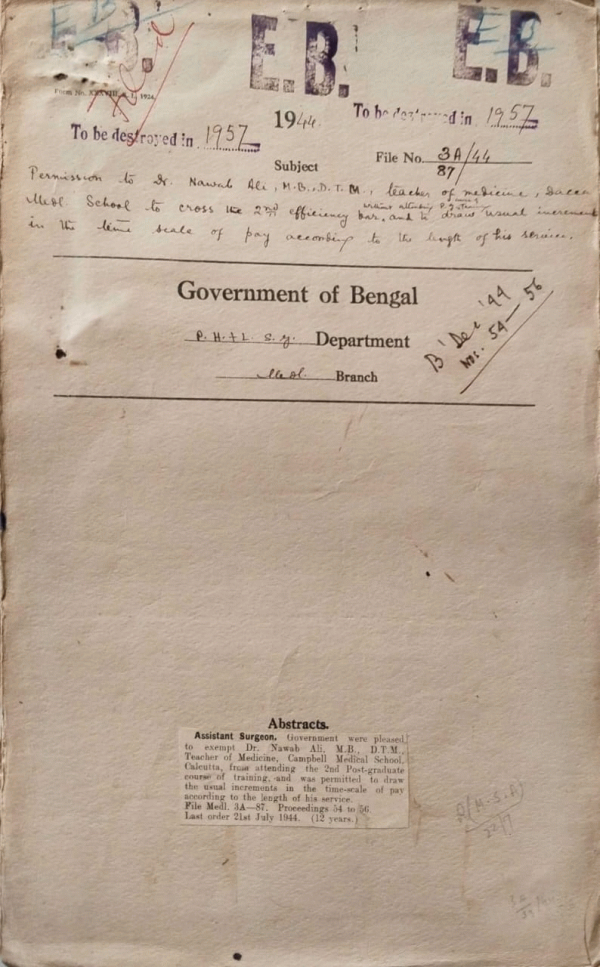 E.B.
E.B.
E.B.
To be destroyed in 1957
1944.
To be destroyed in 1957
Subject
File No. 3A/44
87
Permission to Dr. Nawab Ali, M.B., D.T.M., teacher of medicine, Dacca
Medl. School to cross the 2nd efficiency bar, and to draw usual increment
in the time scale of pay according to the length of his service.
Government of Bengal
P.H. & L. S. G. Department
Medl. Branch
B Dec '44
Nos. 54–56
Abstracts.
Assistant Surgeon. Government were pleased
to exempt Dr. Nawab Ali, M.B., D.T.M.,
Teacher of Medicine, Campbell Medical School,
Calcutta, from attending the 2nd Post-graduate
course of training, and was permitted to draw
the usual increments in the time-scale of pay
according to the length of his service.
File Medl. 3A—87. Proceedings 54 to 56
Last order 21st July 1944. (12 years.)